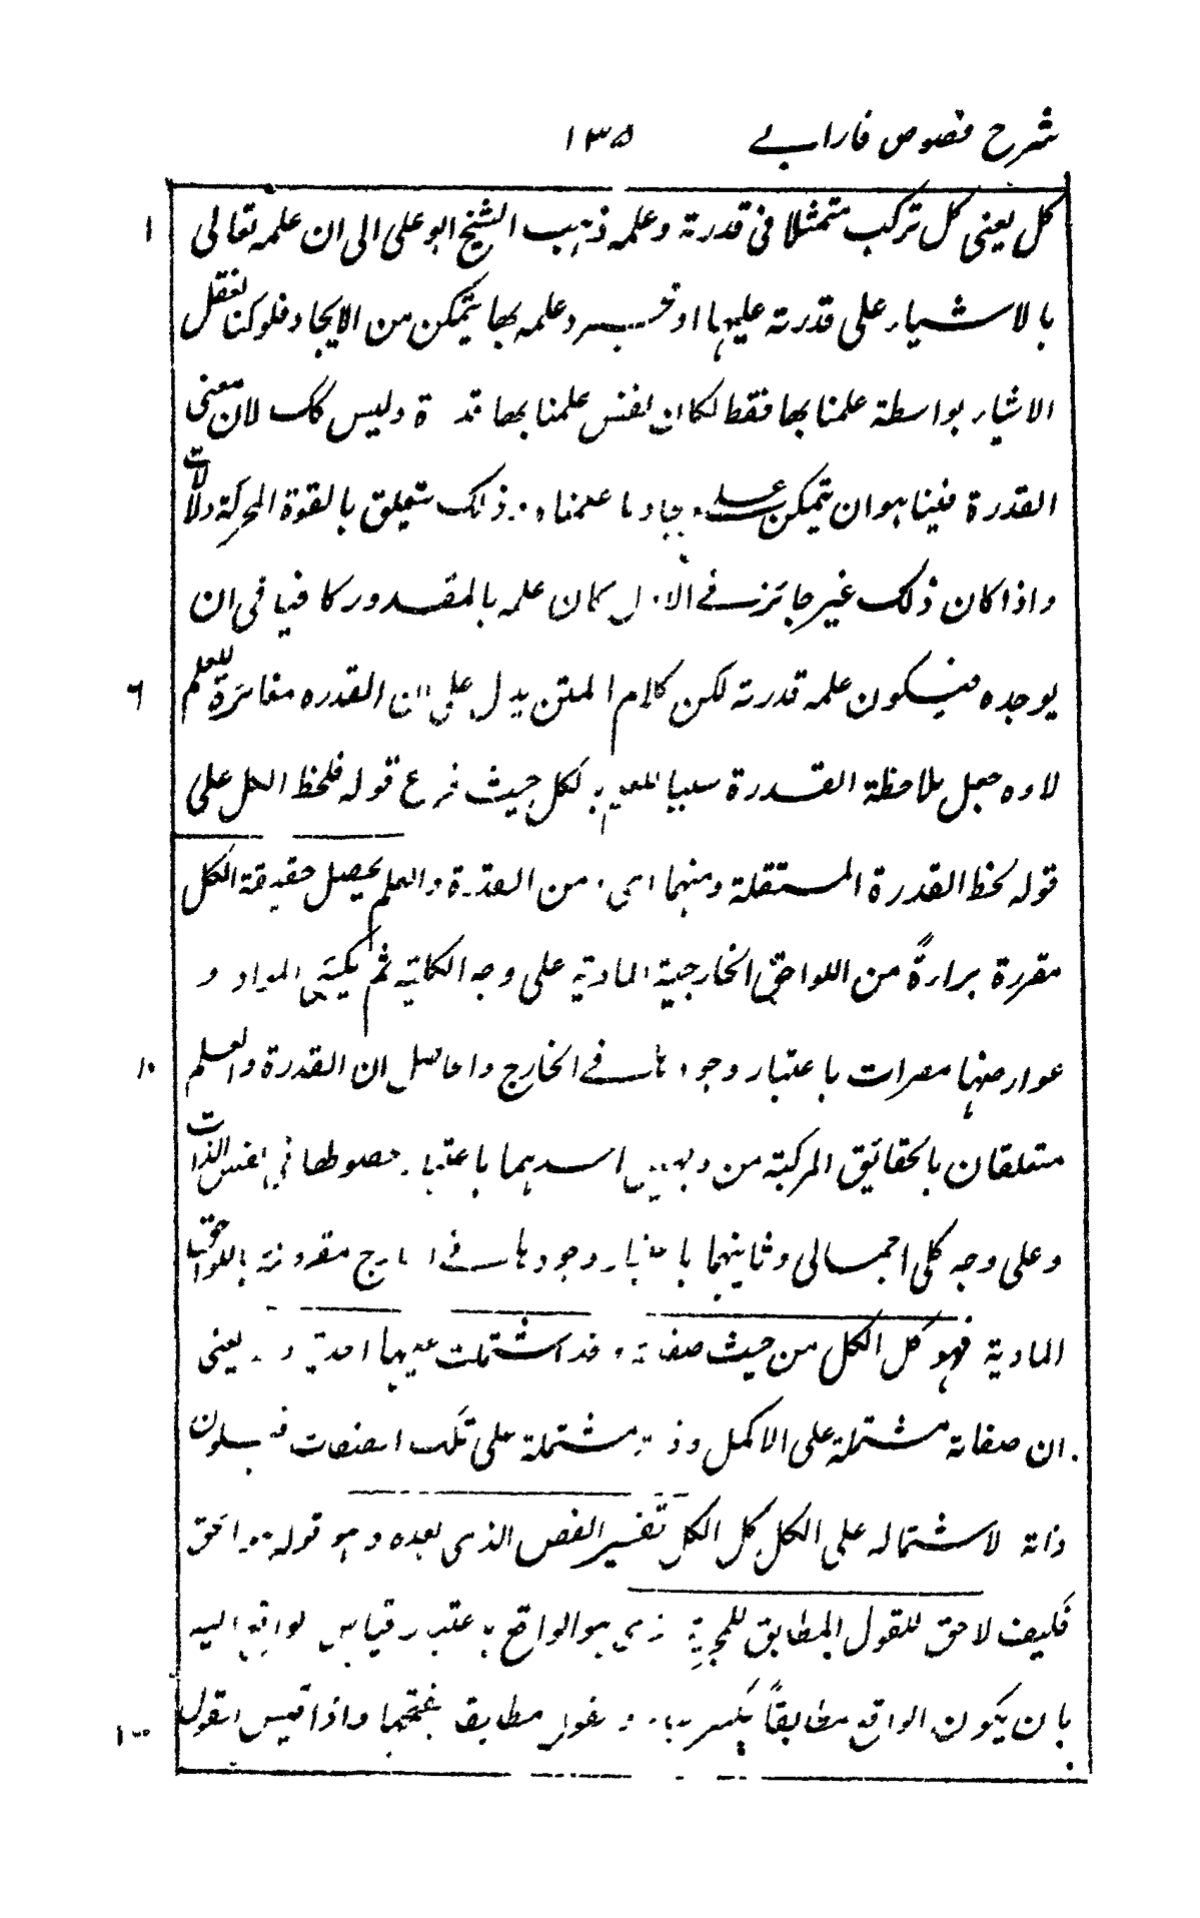 شرح فصوص فارابے ١٣٥
١ كل يعنى كل تركب متمثلا فى قدرته وعلمه ذهب الشيخ ابو على الى ان علمه تعالى
بالاشياء على قدرته عليها وعلمه بها يتمكن من الايجاد فلو كنا نعقل
الاشياء بواسطة علمنا بها فقط لكان نفس علمنا بها وليس كك لان معنى
القدرة فينا هو ان يتمكن ما علمناه وذلك يتعلق بالقوة المحركة والآلات
واذا كان ذلك غير جائز فى كان علمه بالمقدور كافيا فى ان
٦ يوجده فيكون علمه قدرته لكن كلام المتن يدل على ان القدره مغائرة للعلم
لانه جعل ملاحظة القدرة سببا للعلم لكل حيث فرع قوله فلحظ الكل على
قوله لحظ القدرة المستقلة ومنهما اى من القدرة والعلم يحصل حقيقة الكل
مقررة مبراةً من اللواحق الخارجية المادية على وجه الكلية ثم يكتسى المواد و
١٠ عوارضها باعتبار وجودها فے الخارج والحاصل ان القدرة والعلم
متعلقان بالحقائق المركبة من وجهين احدهما باعتبار حصولها فى نفس الذات
وعلى وجه كلى اجمالى وثانيهما باعتبار وجودها فے الخارج مقرونة باللواحق
المادية فهو كل الكل من حيث صفاته وقد اشتملت عليها احدية يعنى
ان صفاته مشتملة على الاكمل وذاته مشتملة على تلك الصفات فيكون
ذاته لاشتماله على الكل كل الكل تفسير الفص الذى بعده وهو قوله هو الحق
فكيف لا حق للقول المطابق للمخبر هو الواقع باعتبار قياس الواقع اليه
١٠٠ بان يكون الواقع مطابقاً بكسر والقول مطابق بفتحها واذا قيس القول